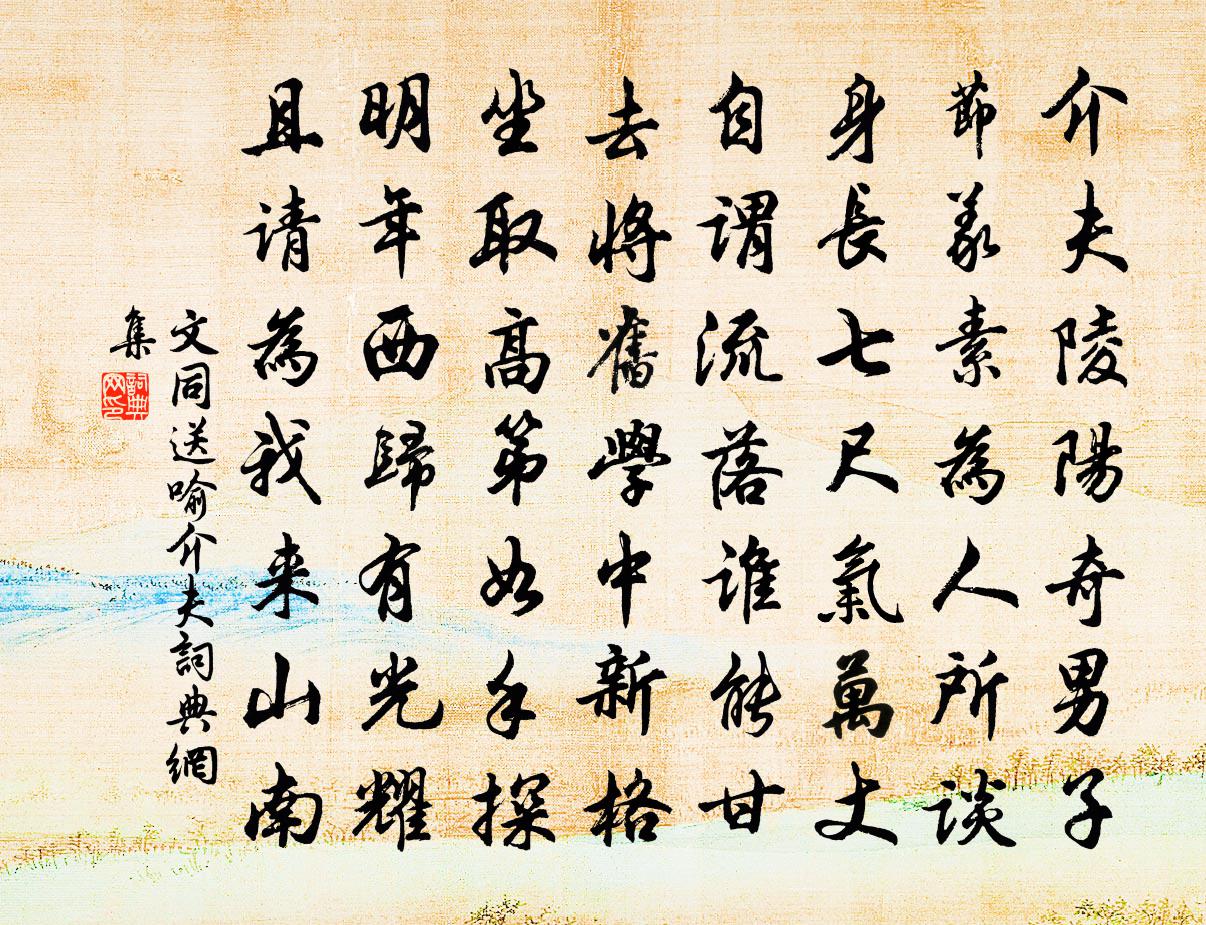 介夫陵陽奇男子
節義素為人所談
身長七尺氣萬丈
自謂流落誰能甘
去將舊學中新格
坐取高第如手探
明年西歸有光耀
且请為我来山南
文同送喻介夫詞典網
集
詞典网印